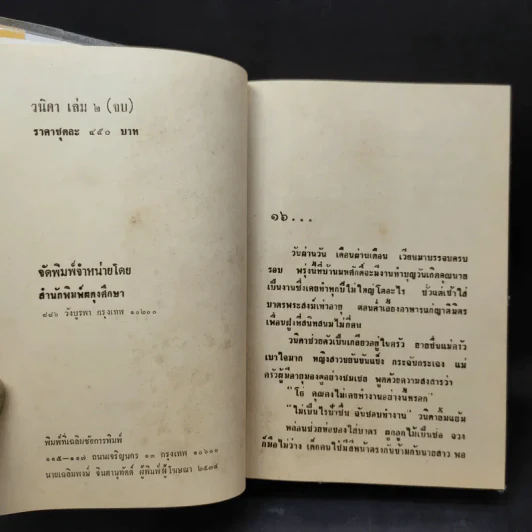 วนิดา เล่ม ๒ (จบ)
ราคาชุดละ ๔๕๐ บาท
จัดพิมพ์จำหน่ายโดย
สำนักพิมพ์ผดุงศึกษา
๔๔๖ วังบูรพา กรุงเทพ ๑๐๒๐๐
พิมพ์ที่เฉลิมชัยการพิมพ์
๑๑๕–๑๑๗ ถนนเจริญนคร ๑๓ กรุงเทพ ๑๐๖๐๐
นายเฉลิมพงษ์ จินดานุศักดิ์ ผู้พิมพ์ผู้โฆษณา ๒๕๓๕
๑๖...
วันผ่านวัน เดือนผ่านเดือน เวียนมาบรรจบครบ
รอบ พรุ่งนี้ที่บ้านมหศักดิ์จะมีงานทำบุญวันเกิดคุณนาย
เป็นงานซึ่งเคยทำทุกปี ไม่ใหญ่โตอะไร เช้า
บาตรพระสงฆ์เท่าอายุ ตอนค่ำเลี้ยงอาหารแก่ญาติมิตร
เพื่อนฝูงที่สนิทสนมไม่กี่คน
วนิดาช่วยตัวเป็นเกลียวอยู่ในครัว ยายชื่นแม่ครัว
เบาใจมาก หญิงสาวขยันขันแข็ง กระฉับกระเฉง แม่
ครัวผู้มีอายุมองดูอย่างชมเชย พูดด้วยความสงสารว่า
"โธ่ คุณคงไม่เคยทำงานอย่างนี้หรอก"
"ไม่เป็นไรป้าชื่น ฉันชอบทำงาน" วนิดายิ้มแย้ม
หล่อนช่วยห่อของใส่บาตร ดูถูกไม้เป็นช่อ จวง
ก็มือไม่ว่าง เด็กคนใช้มีสีหน้าตรากันข้ามกับนายสาว พอ